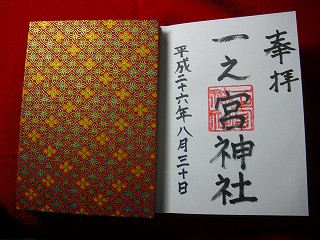 奉拝
一之宮神社
平成二十六年八月三十日